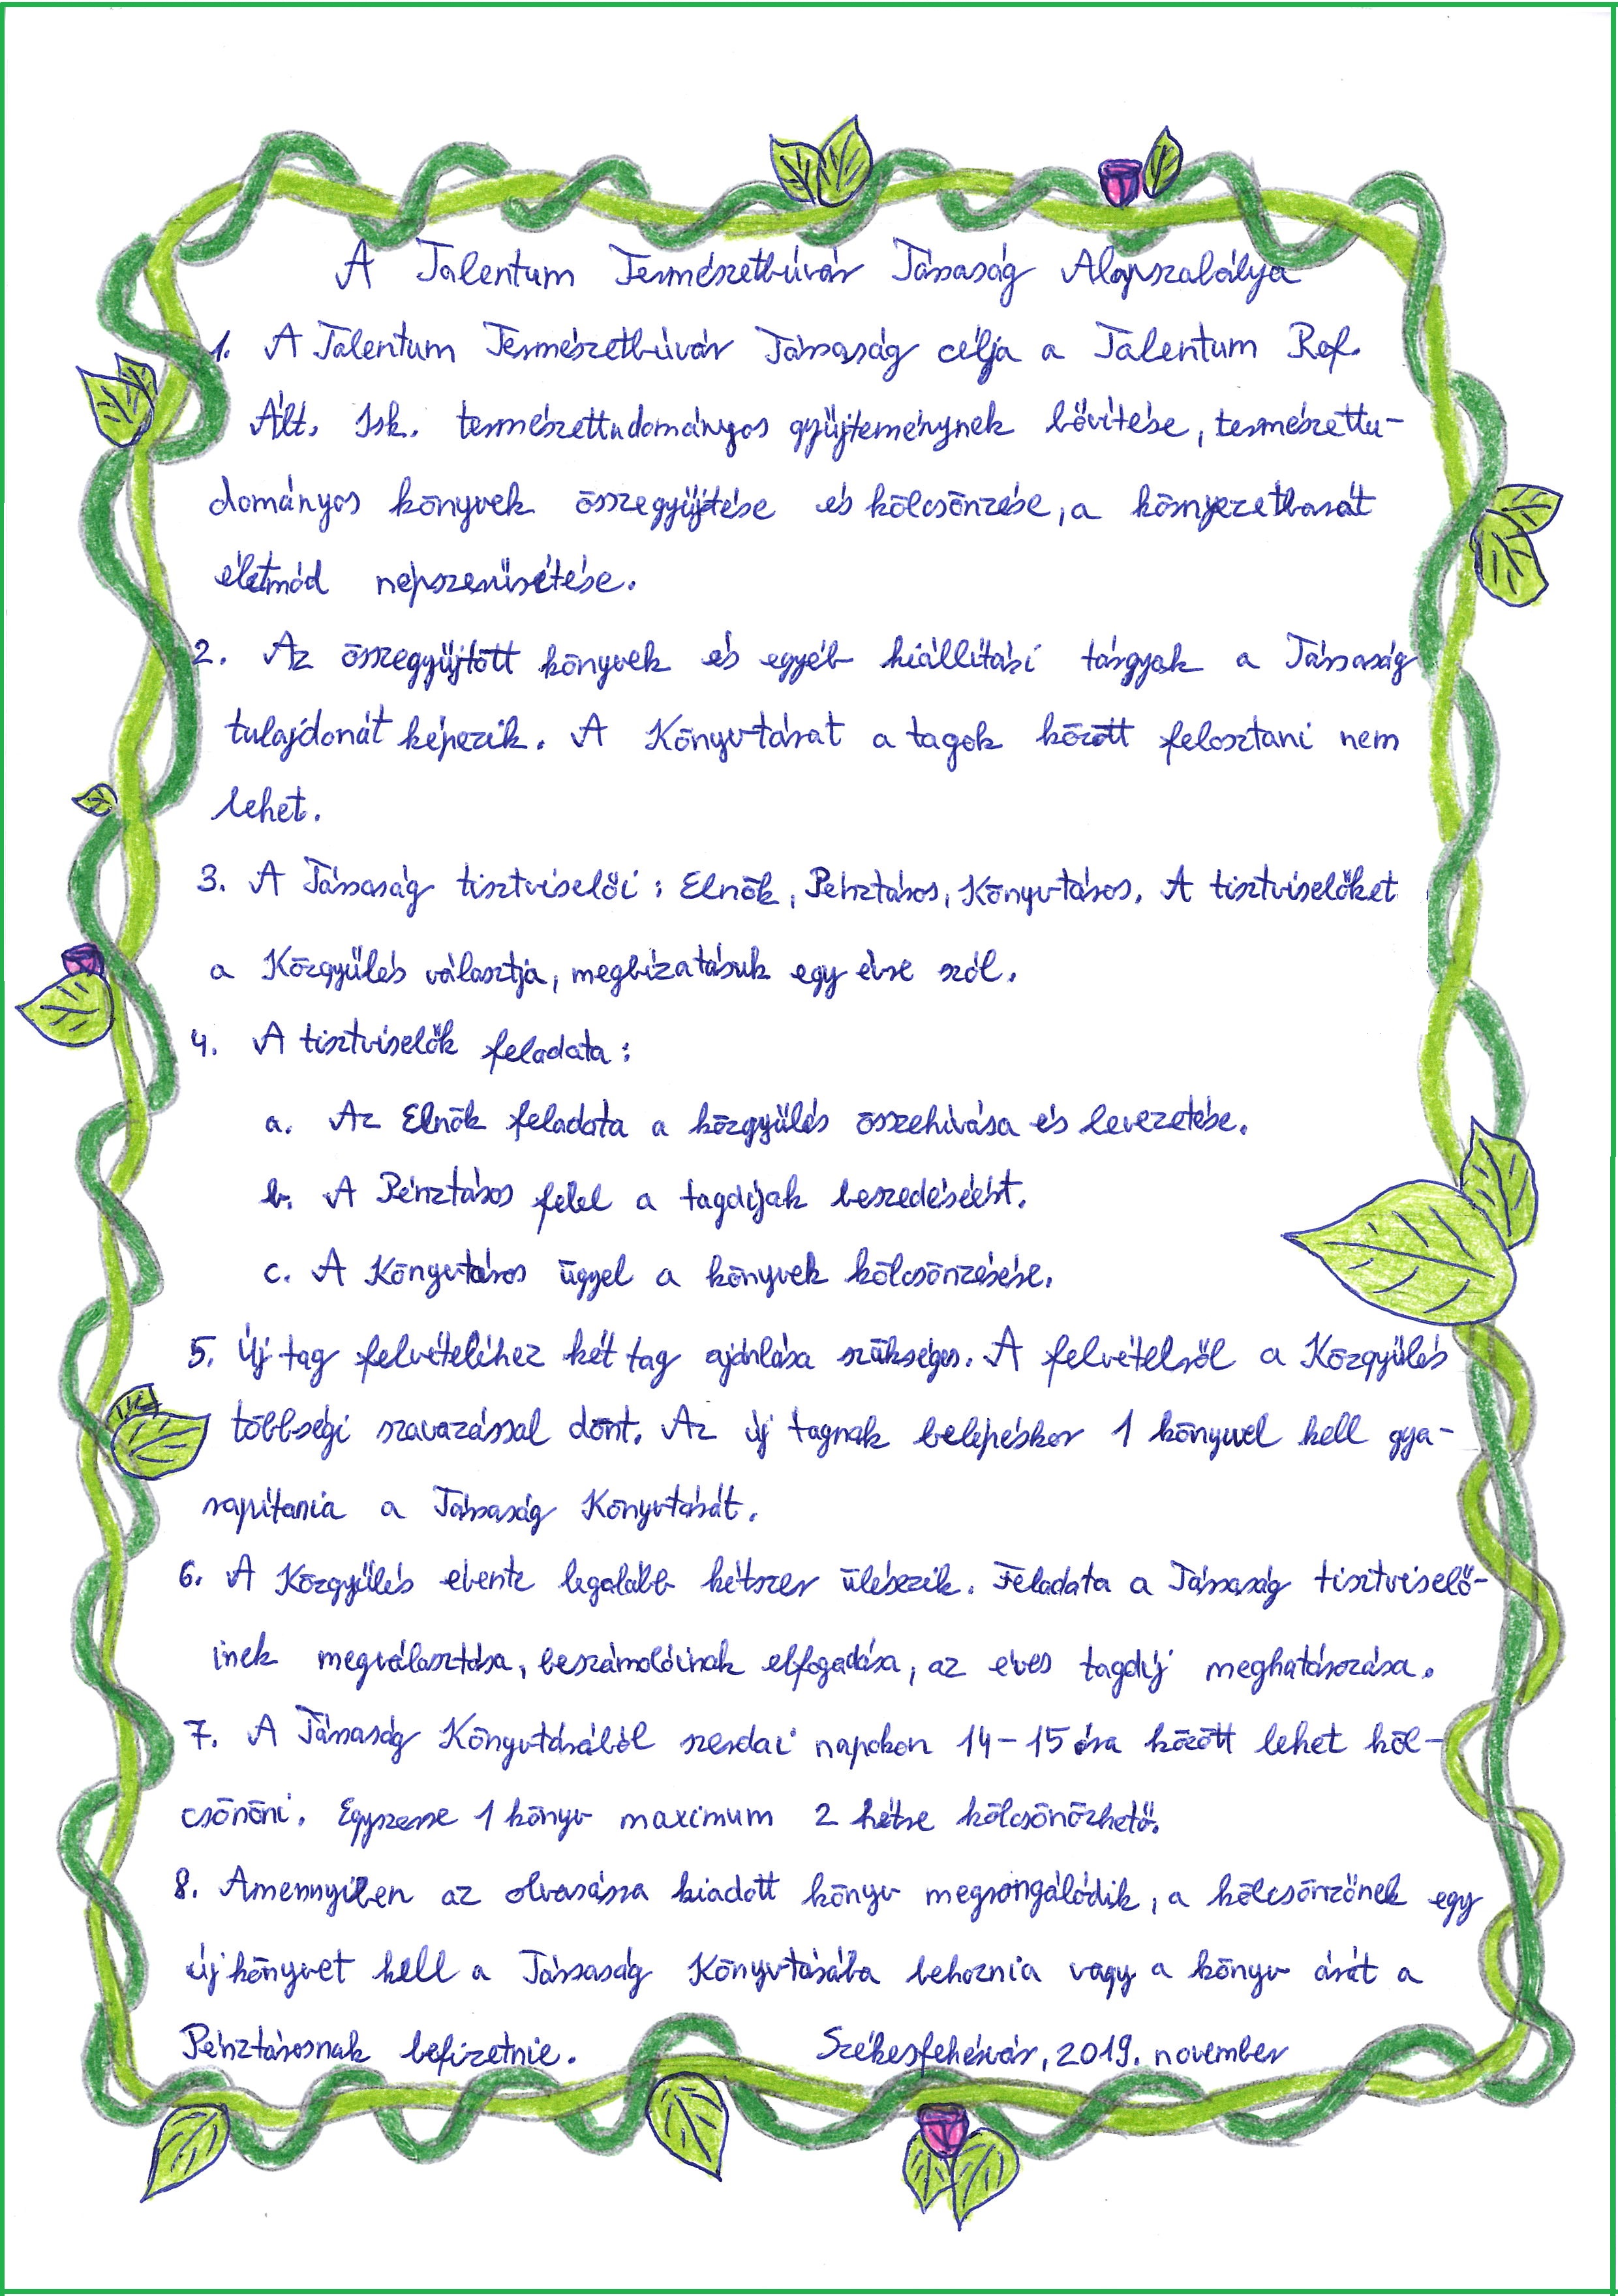 A Talentum Természetbúvár Társaság Alapszabálya
1. A Talentum Természetbúvár Társaság célja a Talentum Ref.
Ált. Isk. természettudományos gyűjteménynek bővítése, természettu-
dományos könyvek összegyűjtése és kölcsönzése, a környezetbarát
életmód népszerűsítése.
2. Az összegyűjtött könyvek és egyéb kiállítási tárgyak a Társaság
tulajdonát képezik. A Könyvtárat a tagok között felosztani nem
lehet.
3. A Társaság tisztviselői: Elnök, Pénztáros, Könyvtáros. A tisztviselőket
a Közgyűlés választja, megbízatásuk egy évre szól.
4. A tisztviselők feladata:
a. Az Elnök feladata a közgyűlés összehívása és levezetése.
b. A Pénztáros felel a tagdíjak beszedéséért.
c. A Könyvtáros ügyel a könyvek kölcsönzésére.
5. Új tag felvételéhez két tag ajánlása szükséges. A felvételről a Közgyűlés
többségi szavazással dönt. Az új tagnak belépéskor 1 könyvvel kell gya-
rapítania a Társaság Könyvtárát.
6. A Közgyűlés évente legalább kétszer ülésezik. Feladata a Társaság tisztviselő-
inek megválasztása, beszámolóinak elfogadása, az éves tagdíj meghatározása.
7. A Társaság Könyvtárából szerdai napokon 14-15 óra között lehet köl-
csönöni. Egyszerre 1 könyv maximum 2 hétre kölcsönözhető.
8. Amennyiben az olvasásra kiadott könyv megrongálódik, a kölcsönzőnek egy
új könyvet kell a Társaság Könyvtárába behoznia vagy a könyv árát a
Pénztárosnak befizetnie. Székesfehérvár, 2019. november